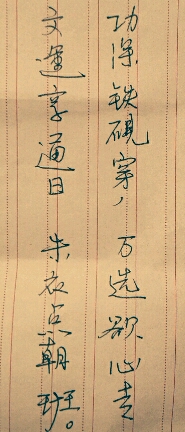 功深铁砚穿，万选欲心青
文運享通日 朱衣点朝班。